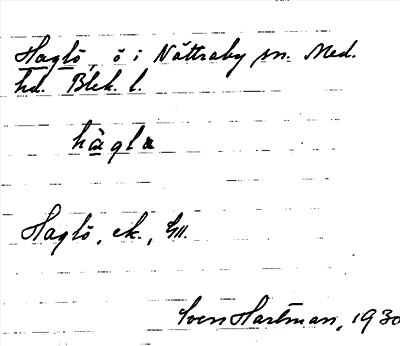 Haglö, ö i Nättraby sn. Med.
hd. Blek. l.
hàgla
Haglö, ek., GII.
Sven Hartman, 1930